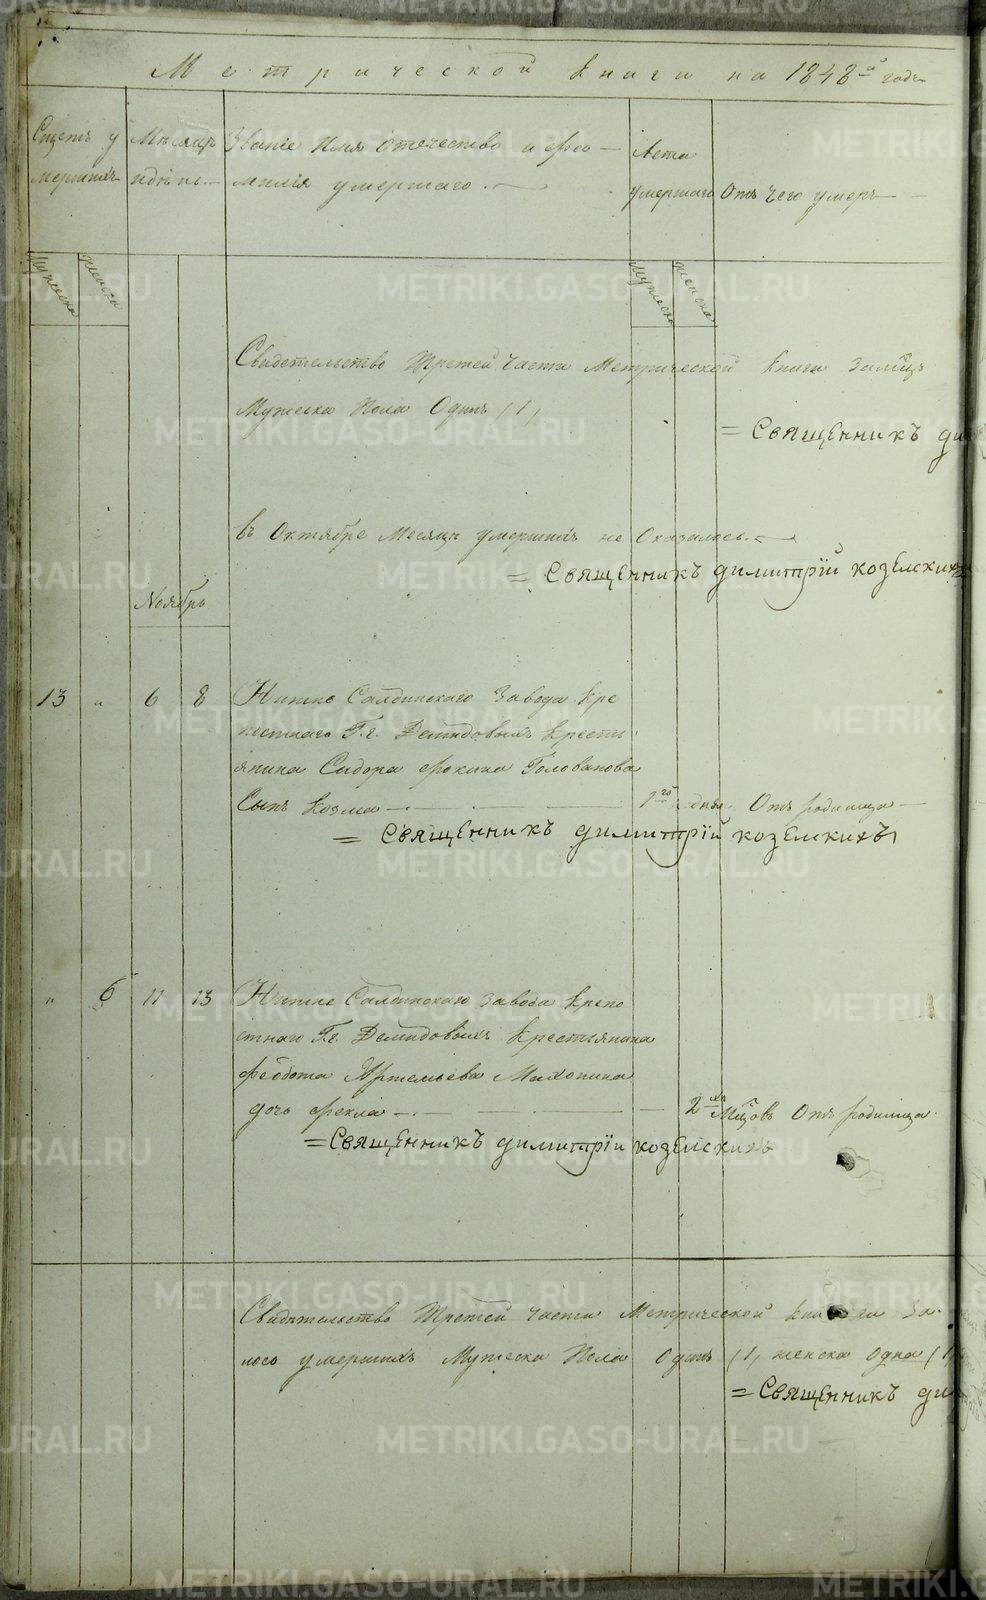 Метрической книги на 1848й годъ
Счетъ у
мершихъ
Мѣсяцъ
и день.
Званіе Имя Отечество и фа
милія умершаго.
Лета
умершаго
Отъ чего умеръ
Мужеска
женска
Мужеска
женска
Свидетельство Третей части Метрической книги
Мужеска Пола Одинъ (1,
= Священникъ ди
въ Октябре Месяце умершихъ не Оказалось.
= Священникъ Димитрій Козелскихъ
Ноябрь
13 " 6 8 Нижне Салдинскаго Завода Кре
постнаго Г.г. Демидовыхъ Кресть
янина Сидора Фокина Голованова
Сынъ Козма 1го дня Отъ родимца
= Священникъ Димитрій Козелскихъ
" 6 11 13 Нижне Салдинскаго Завода Крепо
стнаго Г.г. Демидовыхъ Крестьянина
Феодота Артемьева Махонина
дочь Фекла 2хъ Мцовъ Отъ родимца
= Священникъ Димитрій Козелскихъ
Свидѣтельство Третей части Метрической
лось умершихъ Мужеска Пола Одинъ (1, женска Одна (1,
= Священникъ ди
METRIKI.GASO-URAL.RU